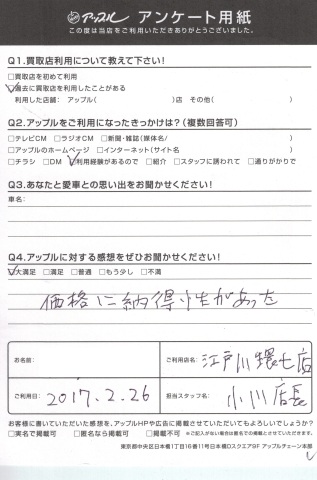 アップル アンケート用紙
この度は当店をご利用いただきありがとうございました。
Q1.買取店利用について教えて下さい!
□買取店を初めて利用
□過去に買取店を利用したことがある
利用した店舗: アップル( )店 その他( )
Q2.アップルをご利用になったきっかけは?(複数回答可)
□テレビCM □ラジオCM □新聞・雑誌(媒体名/ )
□アップルのホームページ □インターネット(サイト名 )
□チラシ □DM □利用経験があるので □紹介 □スタッフに誘われて □通りがかりで
Q3.あなたと愛車との思い出をお聞かせください!
車名:
Q4.アップルに対する感想をぜひお聞かせください!
□大満足 □満足 □普通 □もう少し □不満
価格に納得性があった
お名前:
ご利用店名: 江戸川環七店
ご利用日: 2017.2.26
担当スタッフ名: 小川店長
お客様に書いていただいた感想を、アップルHPや広告に掲載させていただいてもよろしいでしょうか?
□実名で掲載可 □匿名なら掲載可 □掲載不可 ※ご記入がない場合は匿名での掲載とさせていただきます。
東京都中央区日本橋1丁目16番11号日本橋Dスクエア9F アップルチェーン本部